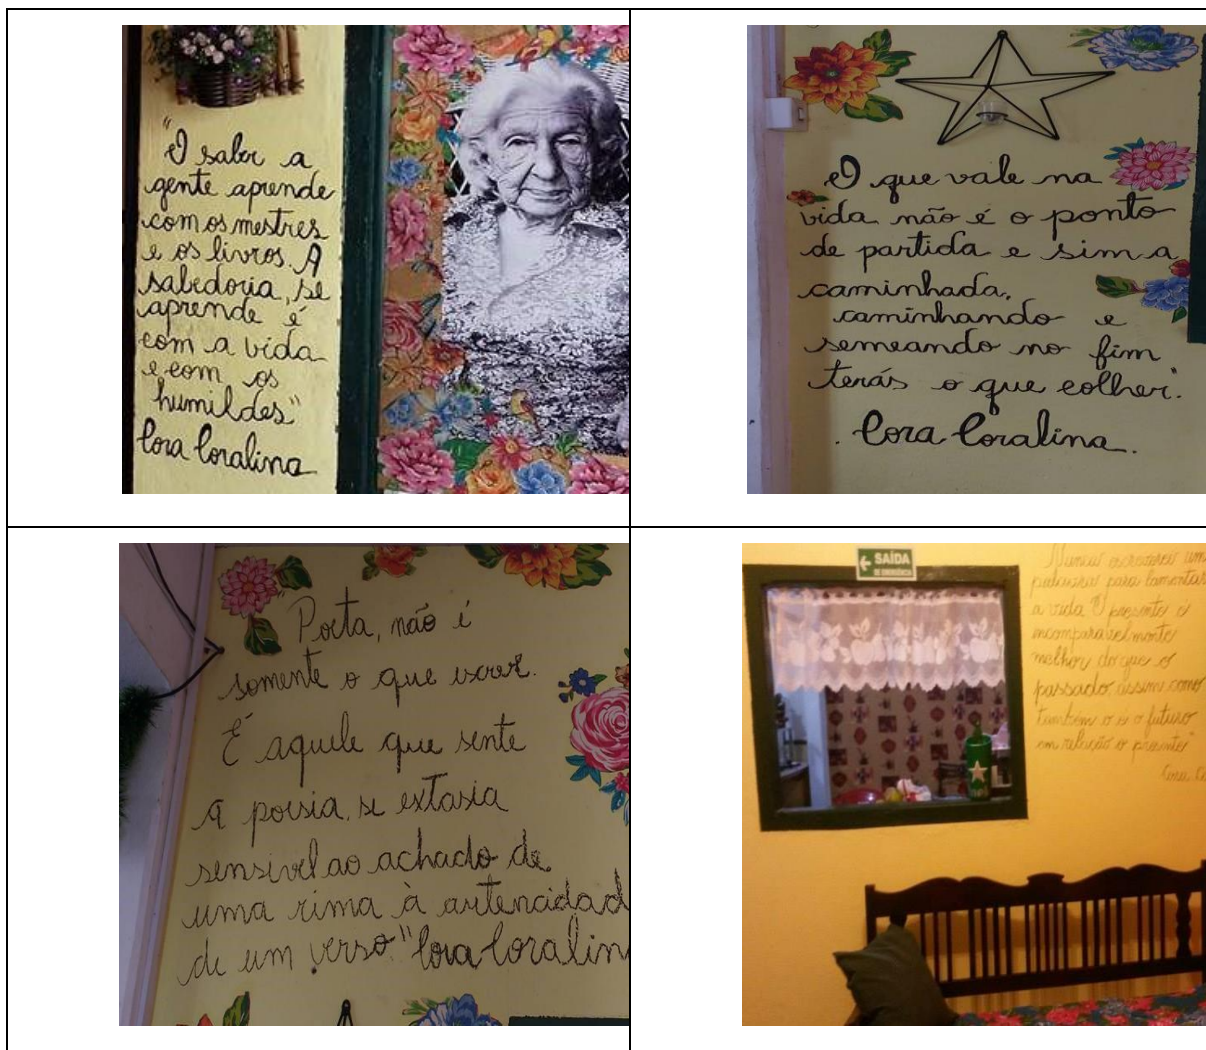 "O saber a
gente aprende
com os mestres
e os livros. A
sabedoria, se
aprende é
com a vida
e com os
humildes"
Cora Coralina
O que vale na
vida não é o ponto
de partida e sim a
caminhada,
caminhando e
semeando no fim
terás o que colher".
. Cora Coralina.
"Poeta, não é
somente o que escreve.
É aquele que sente
a poesia, se extasia
sensivel ao achado de
uma rima à autencidad
de um verso" Cora Coralin
SAÍDA
DE EMERGÊNCIA
Nunca escreverei um
palavra para lamentar
a vida. O presente é
incomparavelmente
melhor do que o
passado, assim como
também o é o futuro
em relação o presente"
Cora Co